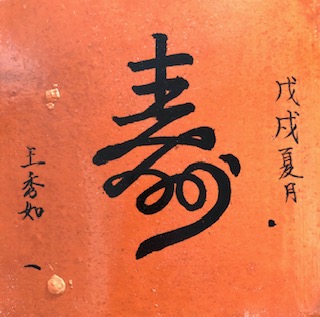 戊戌夏月
寿
王秀如